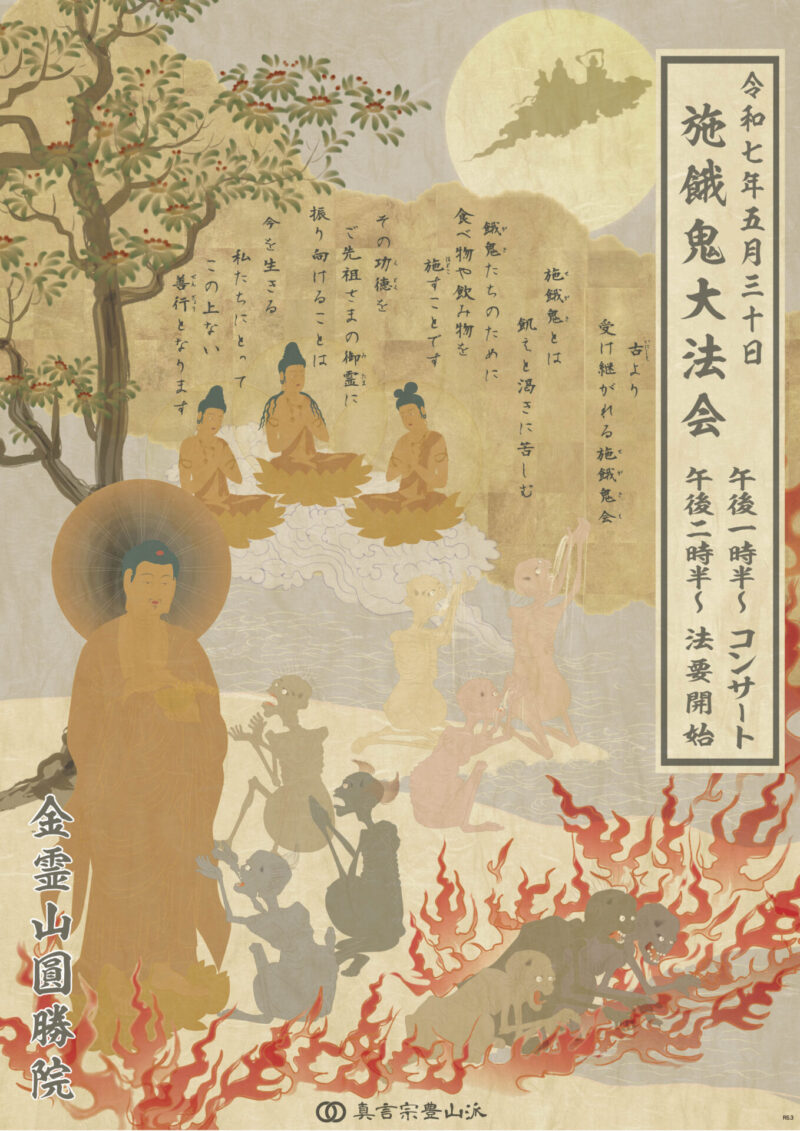 令和七年五月三十日
施餓鬼大法会
午後一時半~ コンサート
午後二時半~ 法要開始
古より
受け継がれる施餓鬼会
施餓鬼とは
飢えと渇きに苦しむ
餓鬼たちのために
食べ物や飲み物を
施すことです
その功徳を
ご先祖さまの御霊に
振り向けることは
今を生きる
私たちにとって
この上ない
善行となります
金霊山圓勝院
真言宗豊山派
R5.3